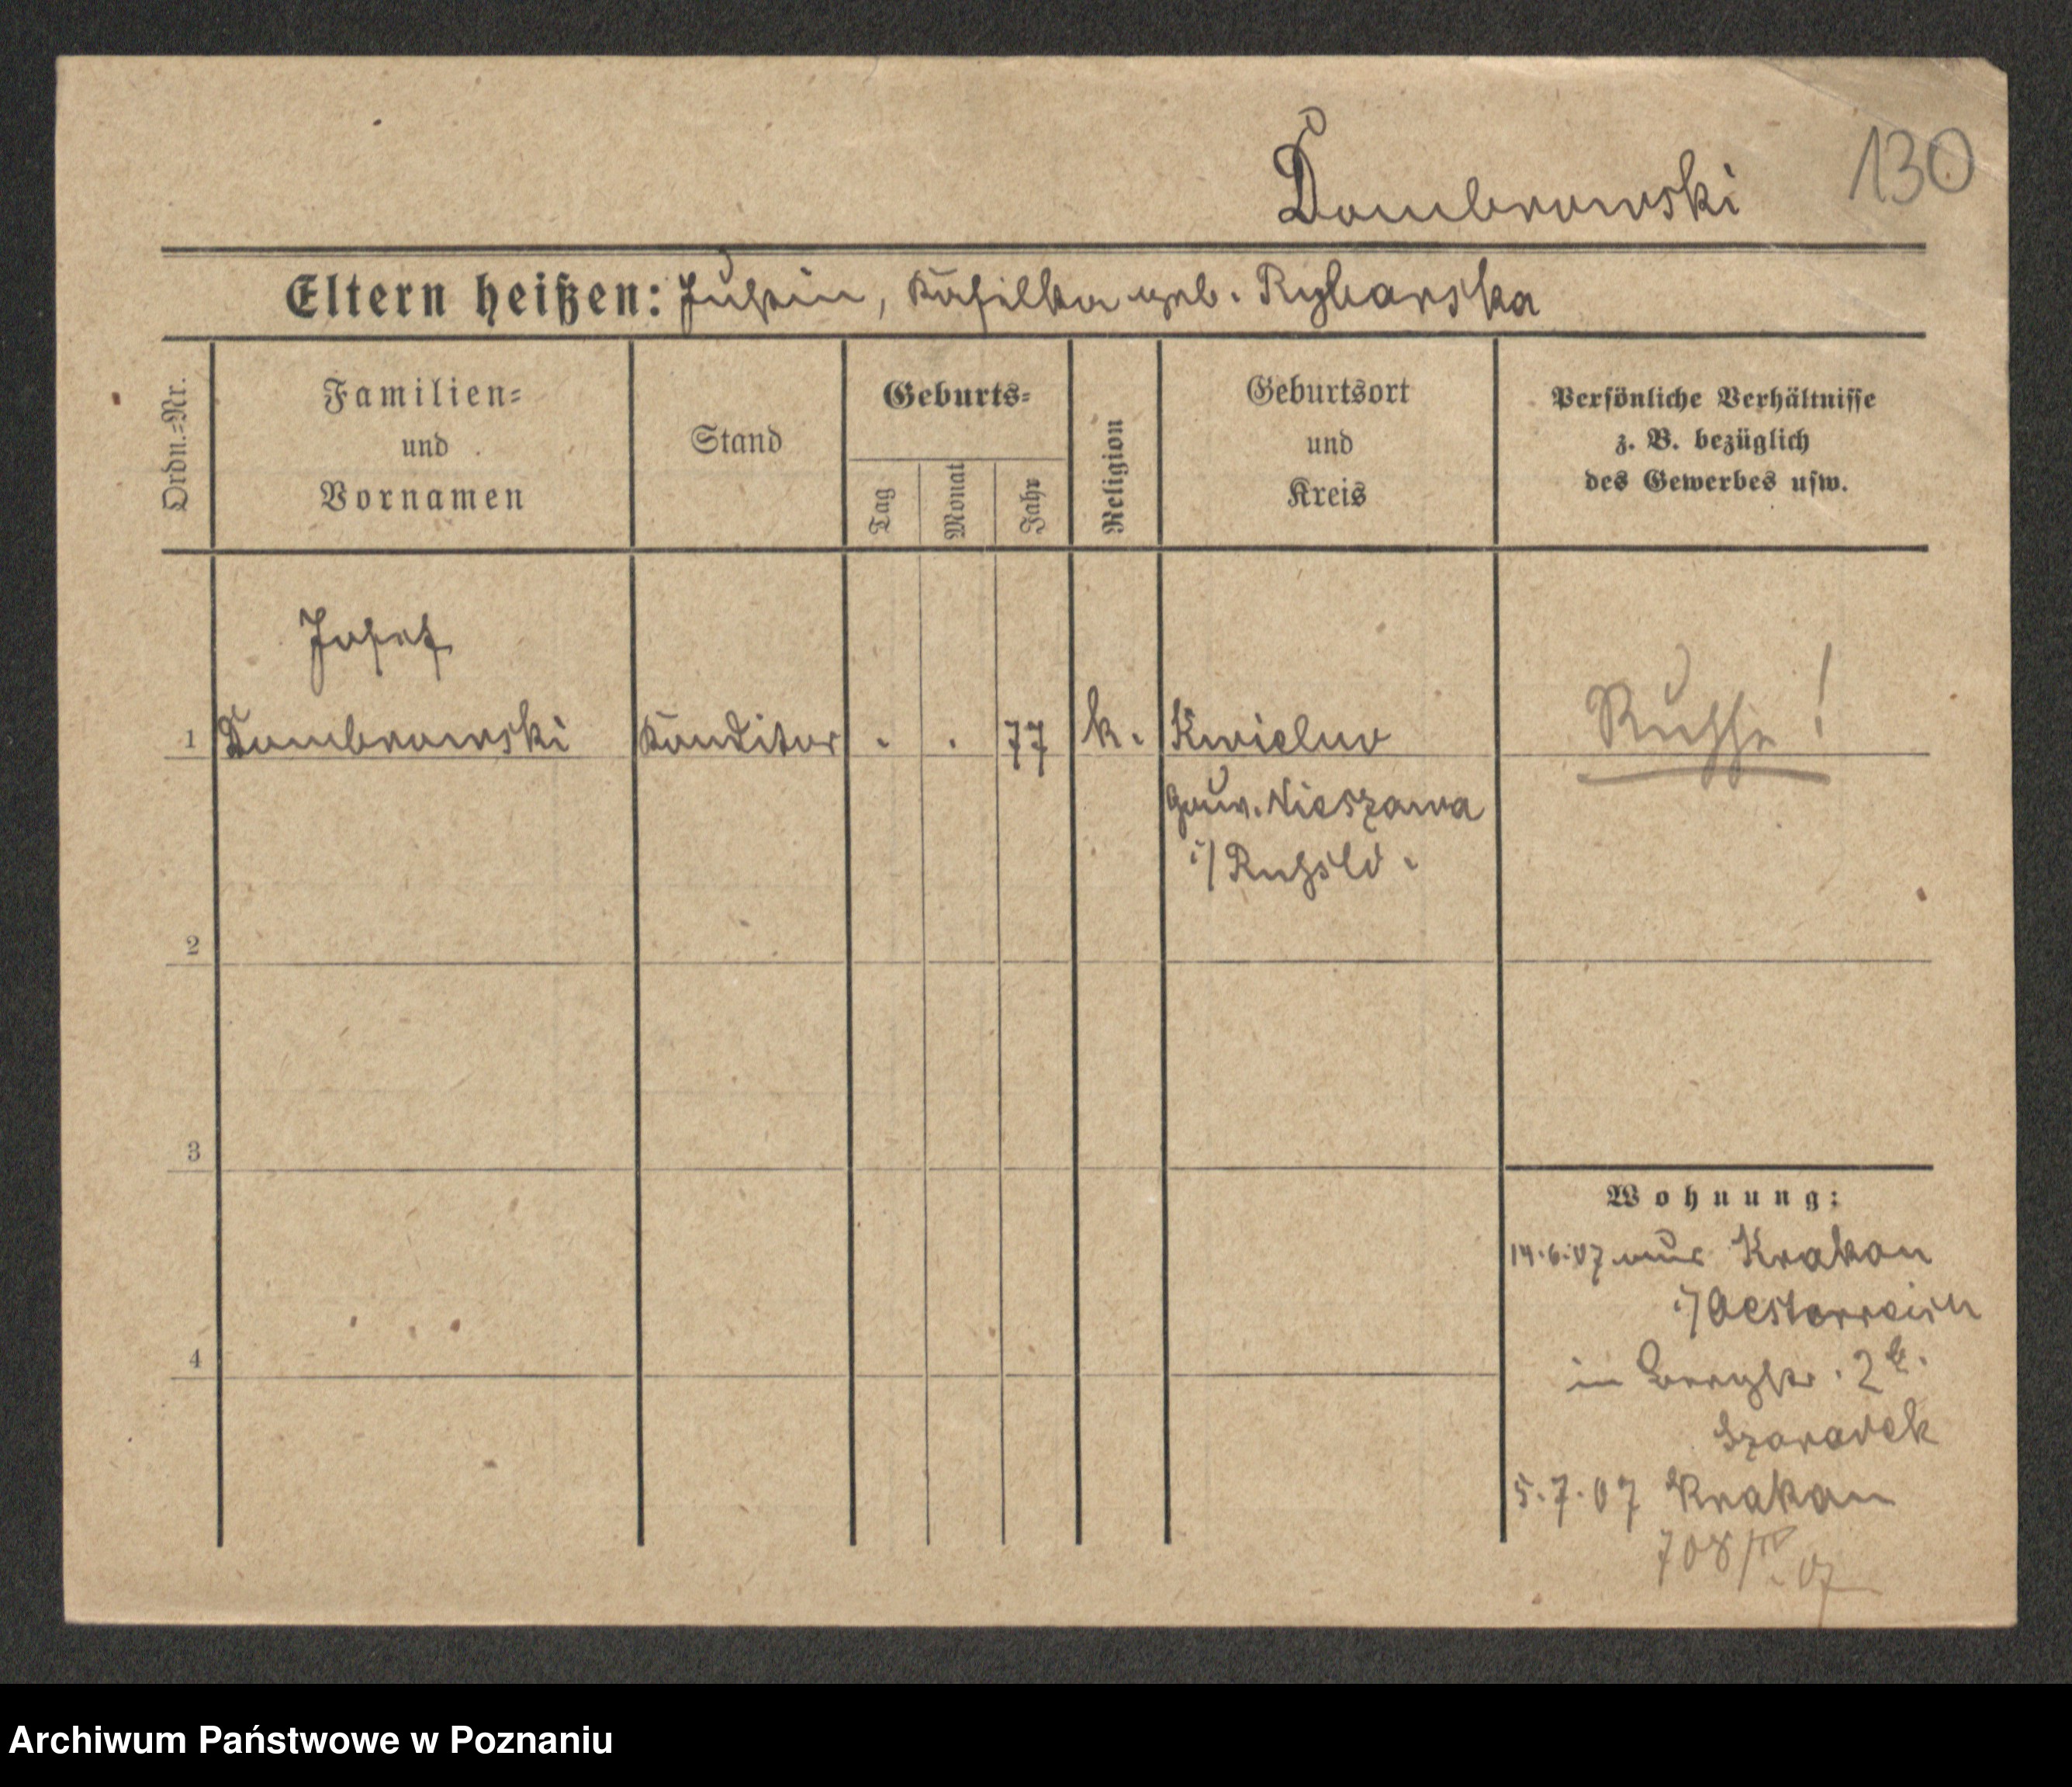 Dombrowski
130
Eltern heißen: Justin, geb. Rybarska
Ordn.=Nr.
Familien=
und
Vornamen
Stand
Geburts=
Tag
Monat
Jahr
Religion
Geburtsort
und
Kreis
Persönliche Verhältnisse
z. B. bezüglich
des Gewerbes usw.
Josef
1 Dombrowski Konditor . . 77 k. Kwielno
Russe!
Gouv. Nieszawa
i/ Rußld.
2
3
4
Wohnung:
14.6.07 aus Krakau
i/ Oesterreich
in Bergstr. 2
5.7.07 Krakau
Archiwum Państwowe w Poznaniu